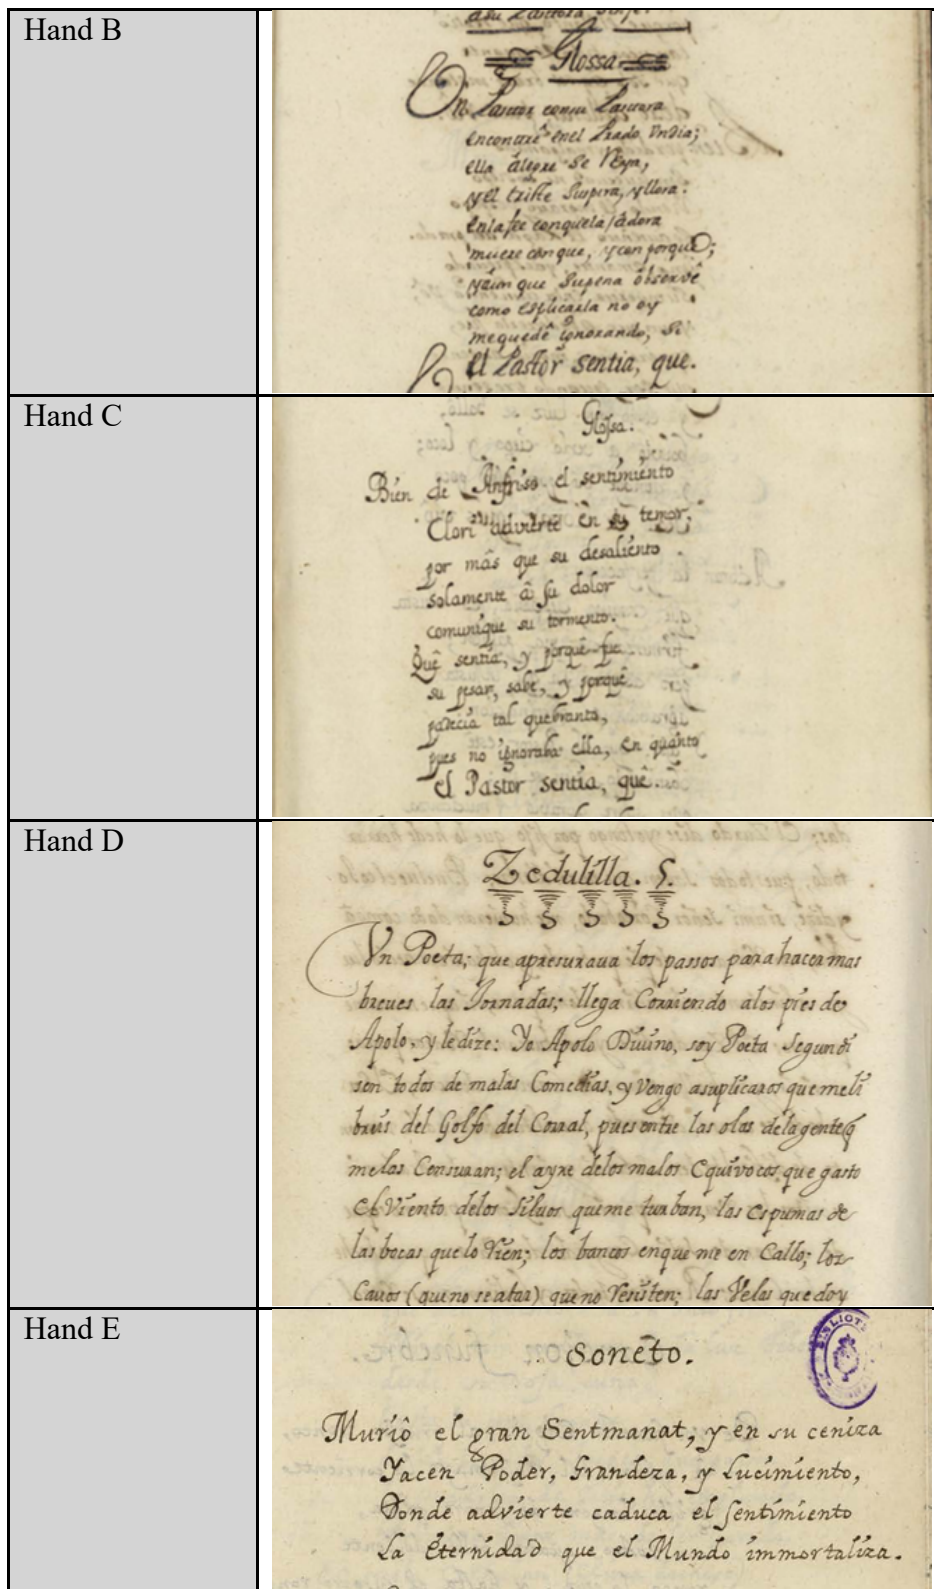 Hand B
asu Pastora dixe.
Glossa
Un Pastor consu Pastora
encontrè enel Prado Undia;
ella âlegre se Reya,
yel triste Suspira, yllora:
enlafee conquela âdora
muere conque, ycon porquê;
yâun que Supena ôbservê
como esplicarla no oy
mequedê ignorando, Si
el Pastor sentia, que.
Hand C
Glosa.
Bien de Anfriso el sentimiento
Clori advierte en su temor,
por mâs que su desaliento
solamente â su dolor
comunique su tormento.
Quê sentia, y porquê fue
su pesar, sabe, y porquê
padecia tal quebranto,
pues no ignoraba ella, en quanto
el Pastor sentia, quê.
Hand D
Zedulilla. 5.
Vn Poeta; que apresuraua los passos para hacer mas
breues las Jornadas; llega Corriendo alos pies de
Apolo, y le dize: Yo Apolo Diuino, soy Poeta Segun di
sen todos de malas Comedias, y vengo asuplicaros que me li
breis del Golfo del Corral, pues entre las olas dela gente q
me las Censuran; el ayre delos malos Equivocos que gasto
el Viento delos Siluos que me turban, las espumas de
las bocas que lo Rien; los bancos en que me en Callo; los
Cauos (que no se atar) que no Resisten; las Velas que doy
Hand E
Soneto.
BIBLIOT
Muriô el gran Sentmanat, y en su ceniza
Yacen Poder, Grandeza, y Lucimiento,
Donde advierte caduca el sentimiento
La Eternidad que el Mundo immortaliza.